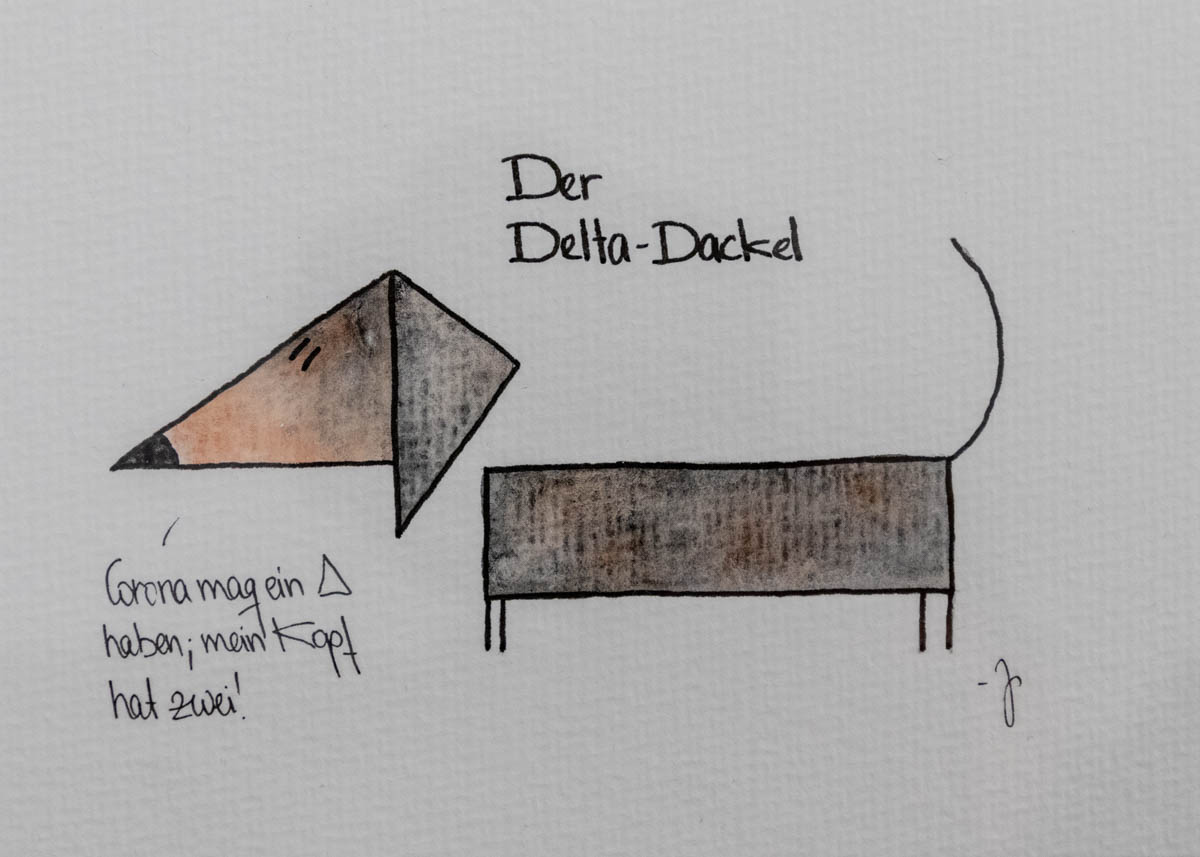 Der
Delta-Dackel
Corona mag ein Δ
haben; mein Kopf
hat zwei!
- J